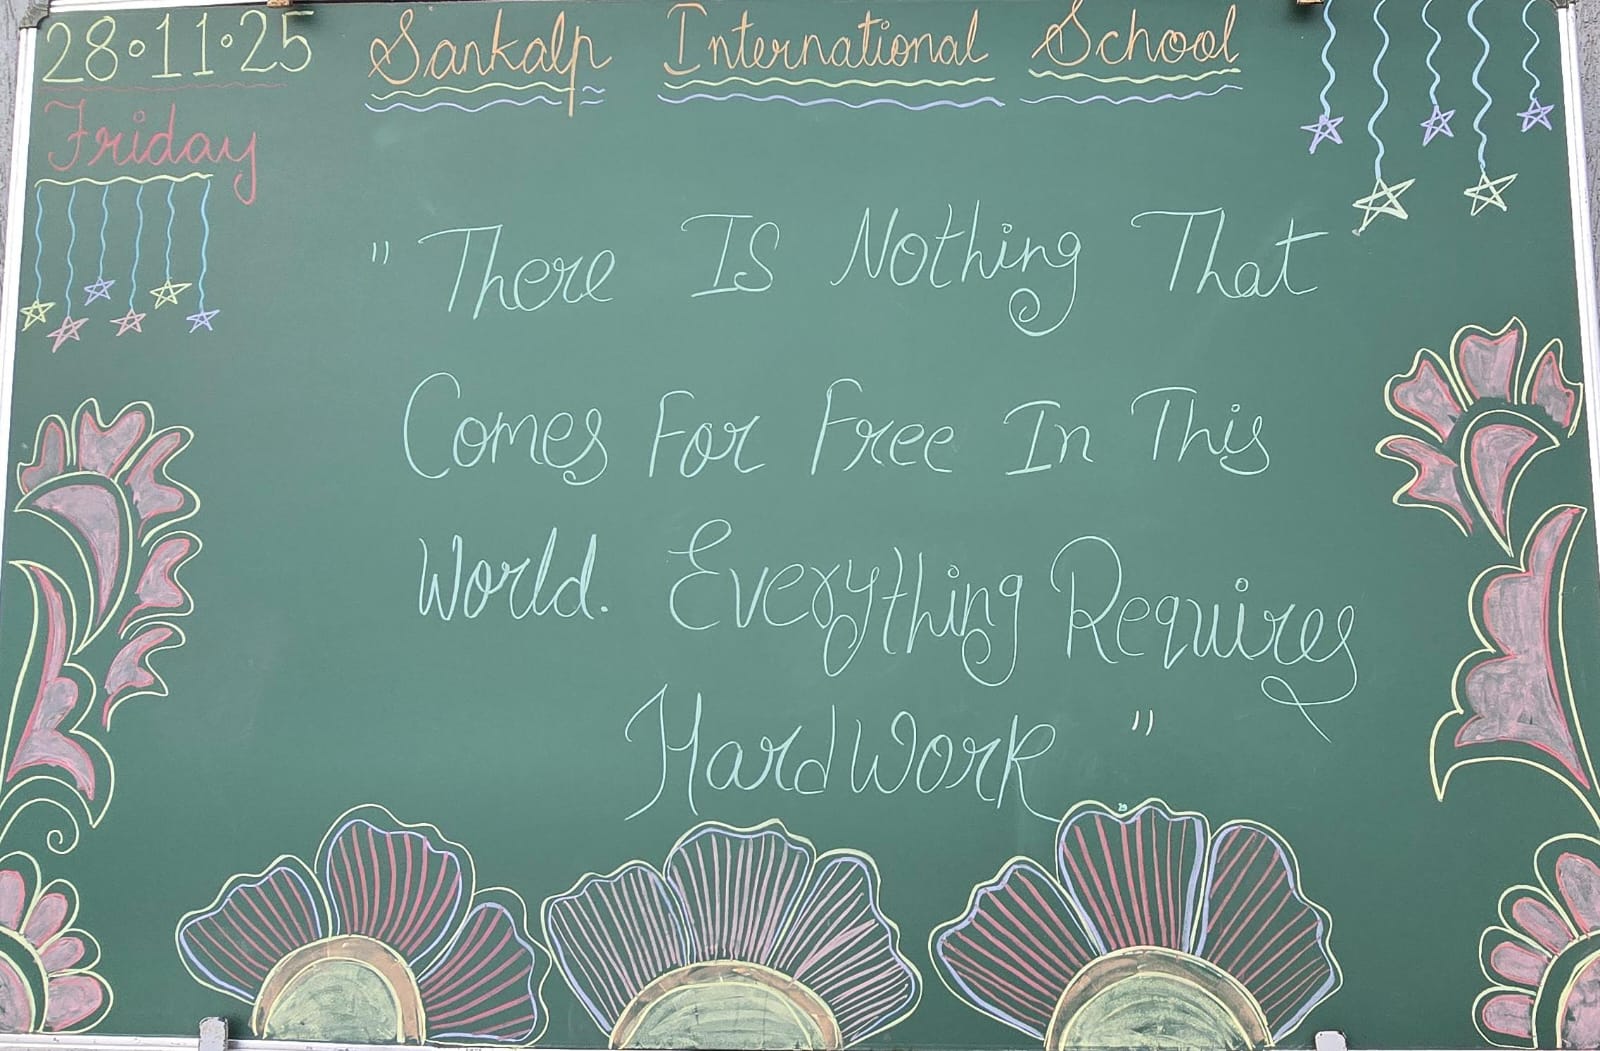 28.11.25 Sankalp International School
Friday
" There Is Nothing That
Comes For Free In This
World. Everything Requires
HardWork "